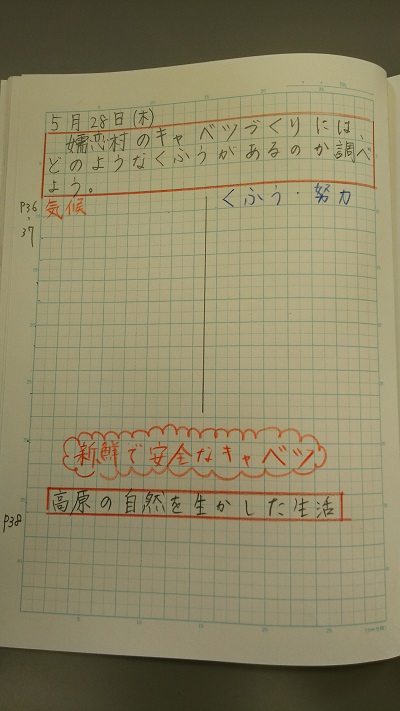 5月28日(木)
嬬恋村のキャベツづくりには、
どのようなくふうがあるのか調べ
よう。
P36 気候 くふう・努力
37
新鮮で安全なキャベツ
高原の自然を生かした生活
P38